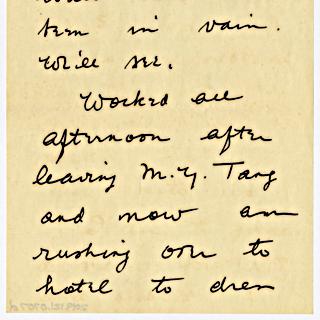 been in vain.
We'll see.
Worked all
afternoon after
leaving M.Y. Tang
and now am
rushing over to
hotel to dress